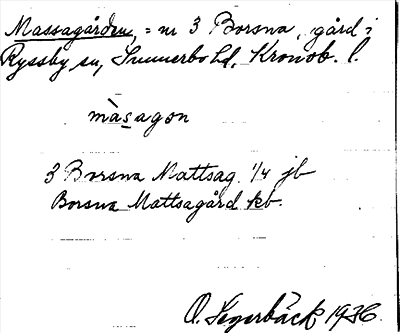 Massagården, = nr 3 Borsna, gård i
Ryssby sn, Sunnerbo hd, Kronob. l.
màsagon
3 Borsna Mattsag. 1/4 jb
Borsna Mattsagård kb.
O. Segerbäck 1936.